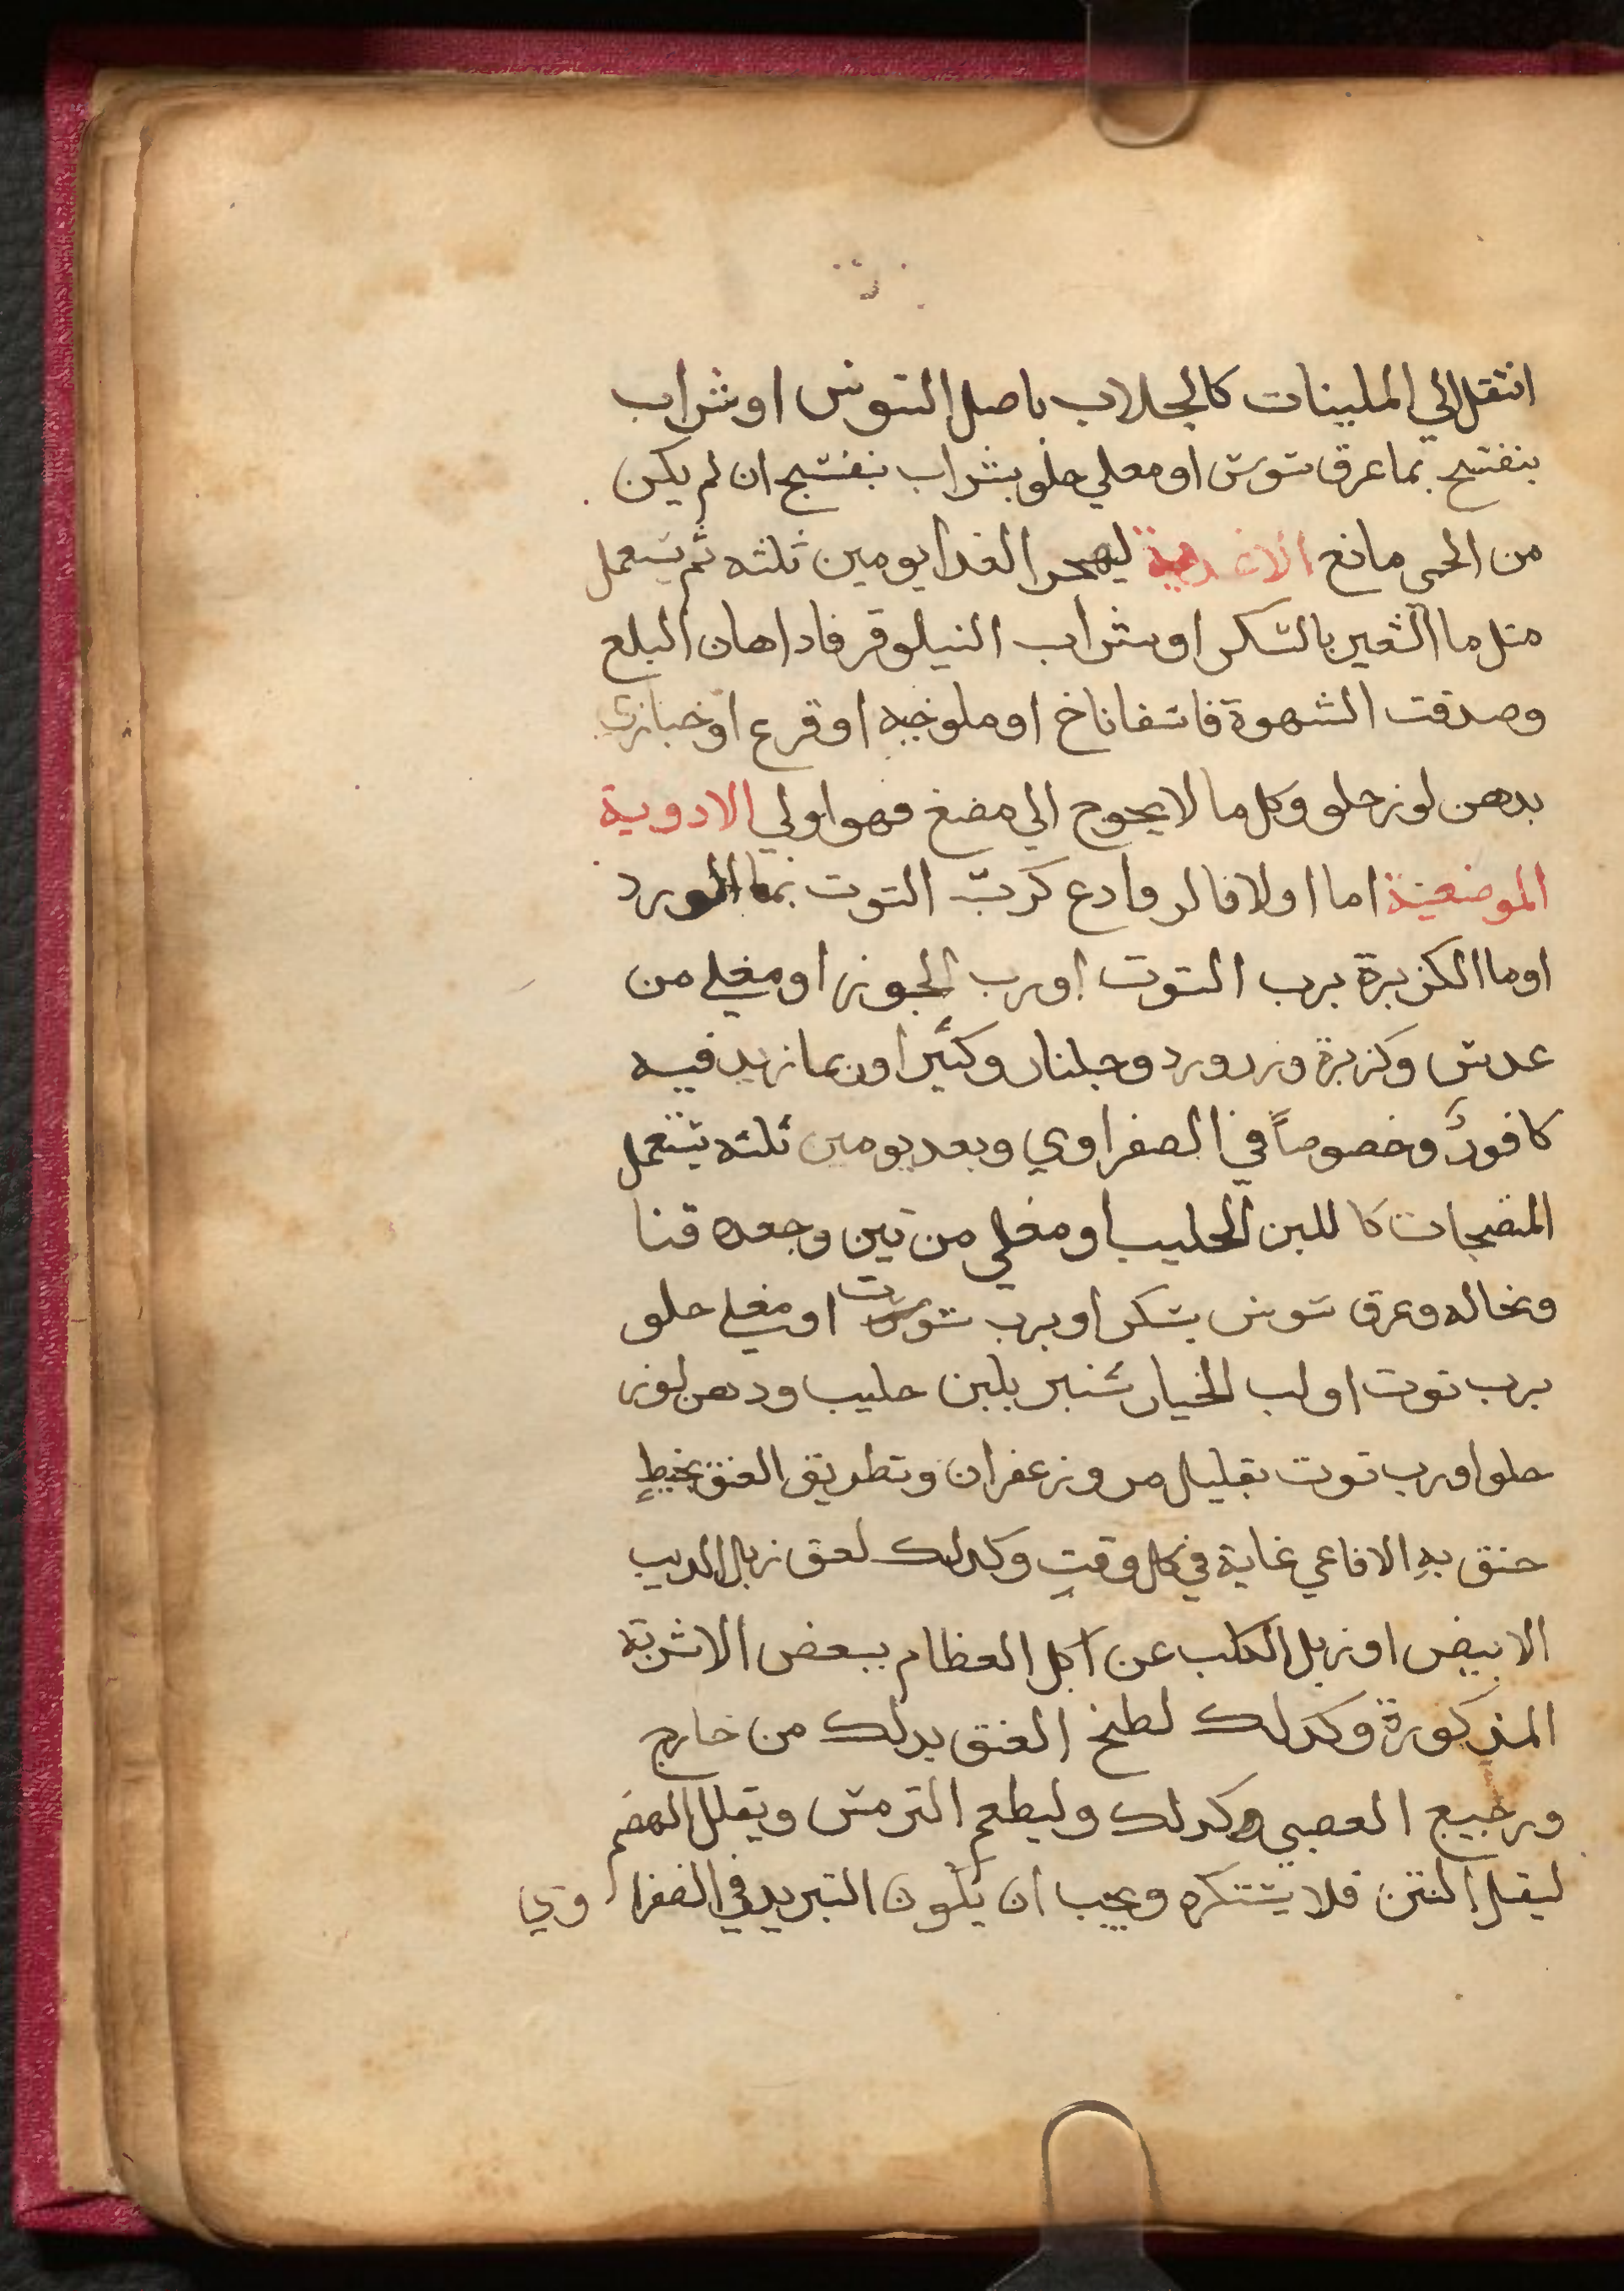 انتقل الي الملينات كالجلاب باصل السوس او شراب
بنفسج بماعرق سوس او مغلي حلو بشراب بنفسج ان لم يكن
من الحمي مانع الاغدية ليهجر الغدا يومين ثلثه ثم يستعمل
مثل ما الشعير بالسكر او شراب النيلوفر فادا هان البلع
وصدقت الشهوة فاسفاناخ او ملوخيه او قرع او خبازي
بدهن لوز حلو وكل ما لا يحوج الي مضغ فهو اولي الادوية
الموضعية اما اولا فالروادع كرب التوت بما الورد
او ما الكزبرة برب التوت او رب الجوز او مغلي من
عدس وكزبرة وزر ورد وجلنار وكثيرا وربما زيد فيه
كافورً وخصوصاً في الصفراوي وبعد يومين ثلثه يستعمل
المنضجات كاللبن الحليب او مغلي من تين وجعده قنا
ونخاله وعرق سوس بسكر او برب توت او مغلي حلو
برب توت او لب الخيار شنبر بلبن حليب ودهن لوز
حلو او رب توت بقليل مر وزعفران وتطويق العنق بخيطٍ
خنق بهِ الافاعي غاية في كل وقتٍ وكدلك لعق زبل الديب
الابيض او زبل الكلب عن اكل العظام ببعض الاشربة
المذكورة وكدلك لطخ العنق بدلك من خارج
ورجيع الصبي وكدلك وليطعم الترمس ويقلل الهضم
ليقل النتن فلا يستكره ويجب ان يكون التبريد في الصفراوي